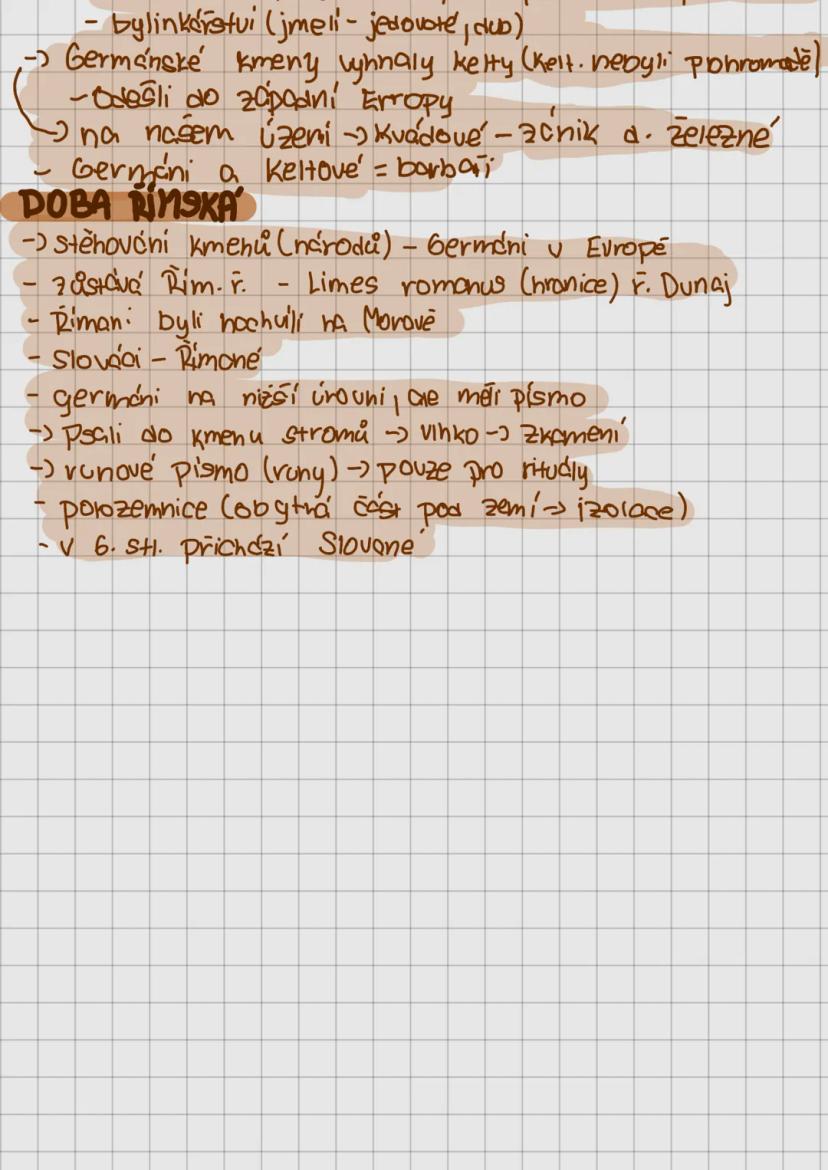 - bylinkářství (jmelí - jedovaté, dub)
-> Germánské kmeny vyhnaly kelty (kelt. nebyli pohromadě)
- Odešli do západní Evropy
-> na našem území -> Kvádové - zánik d. železné
- Germáni a Keltové = barbaři
DOBA ŘÍMSKÁ
-> stěhování kmenů (národů) - Germáni v Evropě
- zůstává Řím. ř. - Limes romanus (hranice) ř. Dunaj
- Římani byli kochuíli na Moravě
- Slováci - Římané
- germáni na nižší úrovni, ale měli písmo
-> Psali do kmenu stromů -> vlhko -> zkamení
-> runové písmo (runy) -> pouze pro rituály
- polozemnice (obytná část pod zemí -> izolace)
- v 6. stl. přichází Slované